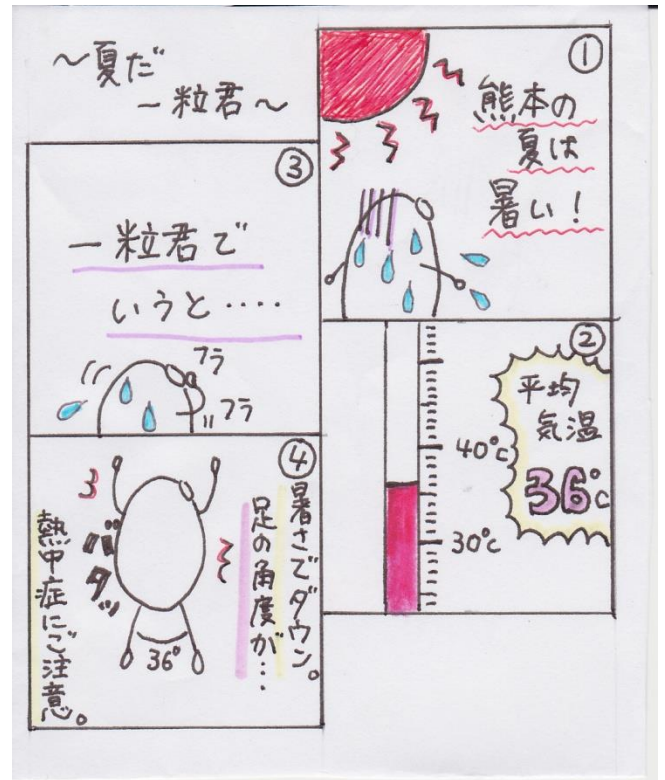 ～夏だ
一粒君～
①
熊本の
夏は
暑い！
②
平均
気温
36℃
40℃
30℃
③
一粒君で
いうと‥‥
フラ
フラ
④
暑さでダウン。
足の角度が…
バタッ
36°
熱中症にご注意。